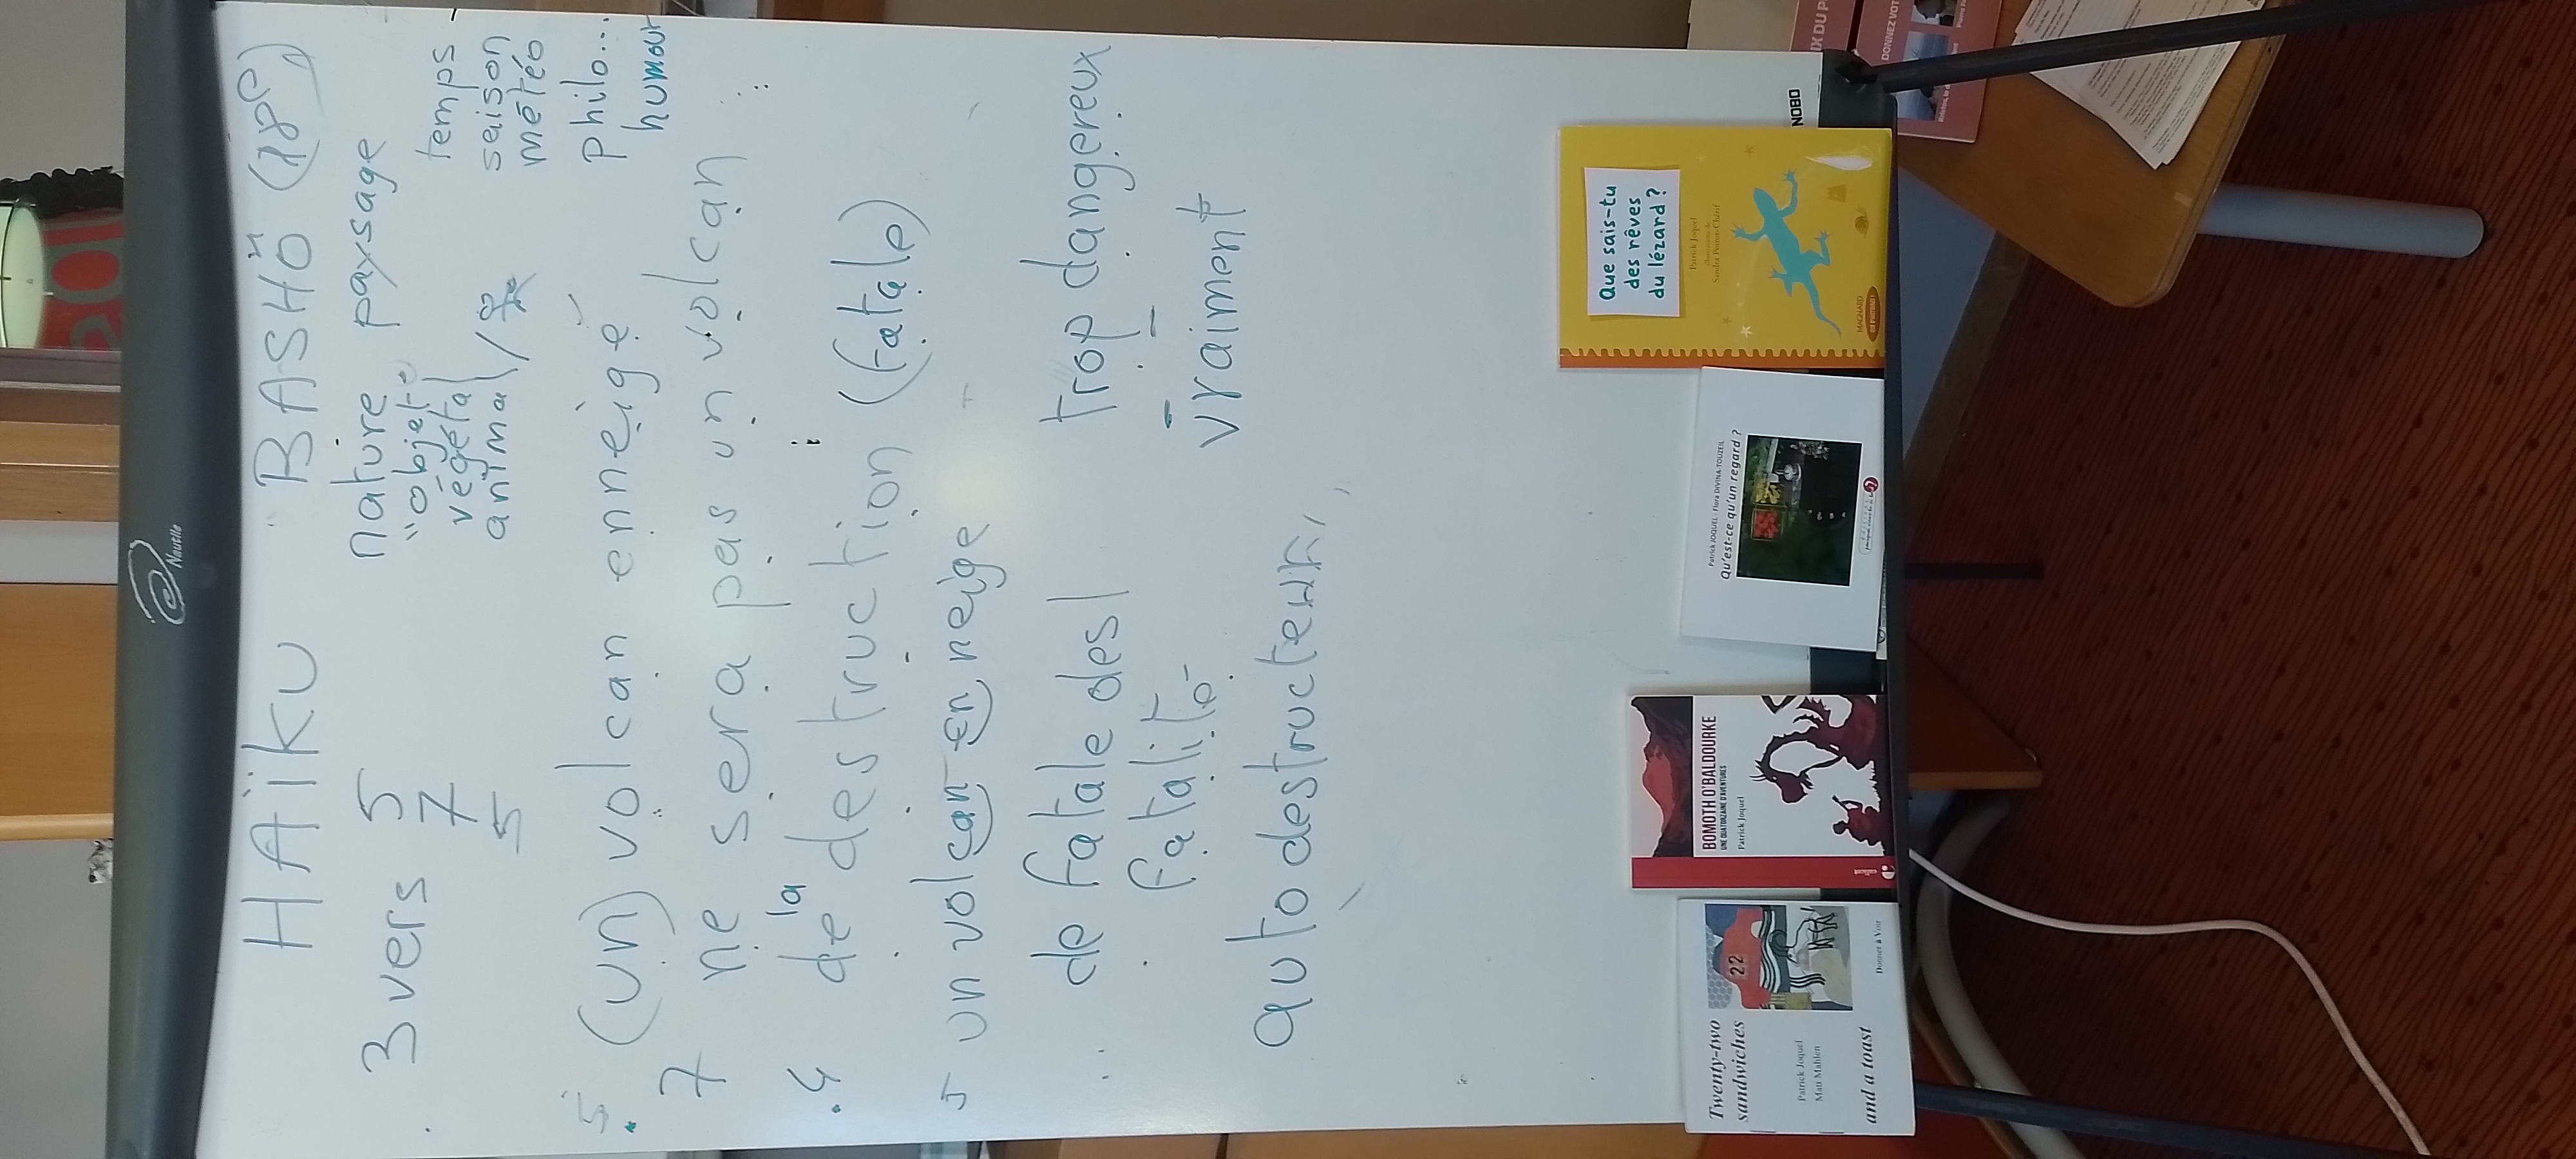 Nautile
HAÏKU BASHŌ (18e)
3 vers 5
7
5
nature paysage
"objet"
végétal
animal /
temps
saison
météo
philo...
humour
5 (un) volcan enneigé
7 ne sera pas un volcan
4 de la destruction (fatale)
5 un volcan en neige
de fatale des
fatalité
trop dangereux
vraiment
autodestructeur
NOBO
Twenty-two
sandwiches
22
Patrick Joquel
Matt Mahlen
and a toast
Donner à Voir
BOMOTH O'BALDOURKE
UNE QUATORZAINE D'AVENTURES
Patrick Joquel
Patrick JOQUEL - Flora DIVINA-TOUZEIL
Qu'est-ce qu'un regard ?
Que sais-tu
des rêves
du lézard ?
Patrick Joquel
MAGNARD
DONNEZ VOT